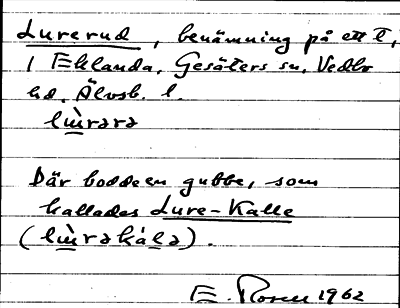 Lurerud, benämning på ett t,
i Eklanda, Gesäters sn, Vedbo
hd, Älvsb. l.
lùrərə
Där bodde en gubbe, som
kallades Lure-Kalle
(lùrəkálə).
E. Rosen 1962